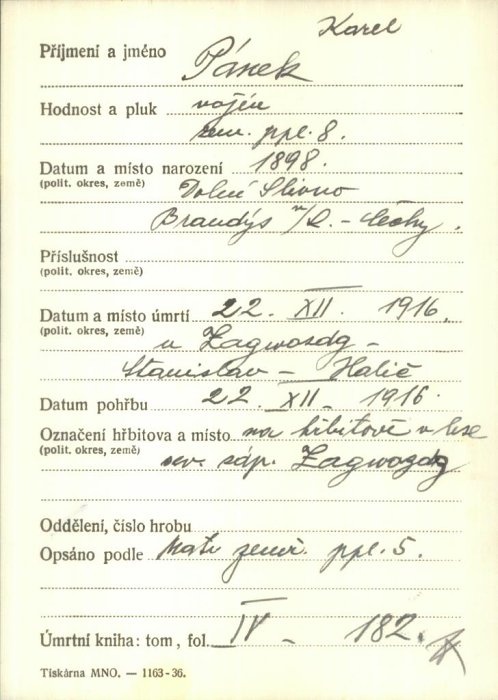 Karel
Příjmení a jméno Pánek
Hodnost a pluk vojín
zem. ppl. 8.
Datum a místo narození 1898.
(polit. okres, země) Dolní Slivno
Brandýs n/L. - Čechy.
Příslušnost
(polit. okres, země)
Datum a místo úmrtí 22. XII. 1916.
(polit. okres, země) u Zagwozdg -
Stanislav - Halič
Datum pohřbu 22. XII. 1916.
Označení hřbitova a místo na hřbitově v lese
(polit. okres, země) sev. záp. Zagwozdg
Oddělení, číslo hrobu
Opsáno podle Matr. zeměř. ppl. 5.
Úmrtní kniha: tom, fol. IV - 182.
Tiskárna MNO. — 1163-36.